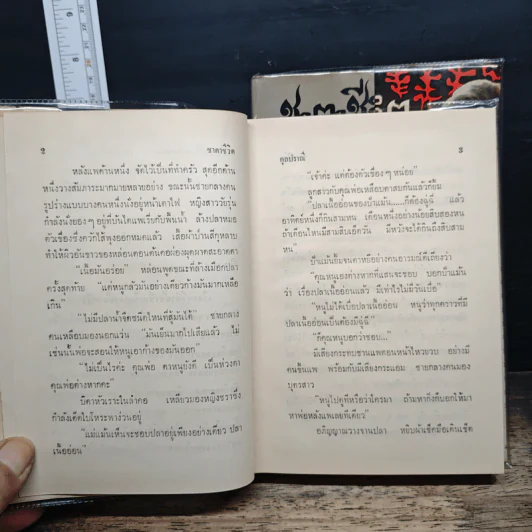 2 ชาตาชีวิต
หลังแพด้านหนึ่ง จัดไว้เป็นที่ทำครัว สุดอีกด้าน
หนึ่งวางสัมภาระมากมายหลายอย่าง ขณะนั้นชายกลางคน
รูปร่างแบบบางคนหนึ่งนั่งอยู่หน้าเตาไฟ หญิงสาววัยรุ่น
กำลังนั่งยอง ๆ อยู่ที่บันไดแพเรี่ยกับพื้นน้ำ ล้างปลาหมอ
ตัวเขื่องซึ่งควักไส้พุงออกหมดแล้ว เสื้อผ้าบ้านสีกุหลาบ
ทำให้ผิวอันขาวของหล่อนตอนต้นคอผุดผาดสะอาดตา
"เนื้อมันอร่อย" หล่อนพูดขณะที่ล้างเมือกปลา
ครั้งสุดท้าย "แต่หนูกลัวมันอย่างเดียวก้างมันมากเหลือ
เกิน"
"ไม่มีปลาน้ำจืดชนิดไหนที่สู้มันได้ ชายกลาง
คนเหลือบมองนอกแว่น "มันเย็นมากไปเสียแล้ว ไม่
เช่นนั้นพ่อจะสอนให้หนูเอาก้างของมันออก"
"ไม่เป็นไรค่ะ คุณพ่อ คาหนูยังดี เป็นห่วงตา
คุณพ่อต่างหากค่ะ"
บิดาหัวเราะในลำคอ เหลียวมองหญิงชราซึ่ง
กำลังเด็ดใบโหระพาง่วนอยู่
"แม่แม้นเห็นจะชอบปลาอยู่เพียงอย่างเดียว ปลา
เนื้ออ่อน"
กุลปราณี 3
"เจ้าค่ะ แต่ต้องตัวเขื่อง ๆ หน่อย"
ลูกสาวกับคุณพ่อเหลือบตาสบกันแล้วก็ยิ้ม
"ปลาเนื้ออ่อนของป้าแม้น......ก็ต้องฉู่ฉี่ แล้ว
อาทิตย์หนึ่งก็กินสามหน เดือนหนึ่งอย่างน้อยสิบสองหน
ถ้าเดือนไหนมีสามสิบเอ็ดวัน มีหวังจะได้กินถึงสิบสาม
หน"
ป้าแม้นยิ้มจนตาหยีอย่างคนอารมณ์ดีเที่ยงตัว
"คุณหนูเองต่างหากที่แสนจะชอบ บอกป้าแม้น
ว่า เรื่องปลาเนื้ออ่อนแล้ว มีเท่าไรไม่มีวันเบื่อ"
"หนูไม่ได้เบื่อปลาเนื้ออ่อน หนูว่าทุกคราวที่มี
ปลาเนื้ออ่อนเป็นต้องมีฉู่ฉี่"
"ก็คุณหนูบอกว่าชอบ..."
มีเสียงกระทบชานแพจนหน้าไหวยวบ อย่างมี
คนขึ้นแพ พร้อมกับมีเสียงกระแอม ชายกลางคนมอง
บุตรสาว
"หนูไปดูทีหรือว่าใครมา ถ้าหากึ่งก็บอกให้มา
หาพ่อหลังแพเลยทีเดียว"
อภิญญาณวางจานปลา หยิบผ้าเช็ดมือเดินเช็ด